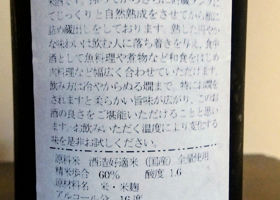 てじっくりと自然熟成をさせてから瓶に
詰め蔵出しをしております。熟した円やか
な味わいは飲む人に落ち着きを与え、食中
酒として魚料理や煮物など和食をはじめ
肉料理など幅広く合わせていただけます。
飲み方は冷やからぬる燗まで、特にお燗を
されますと柔らかい旨味が広がり、このお
酒の良さをご堪能いただけることと思い
ます。お飲みいただく温度により変化する
味を是非お試しください。
原料米 酒造好適米(国産)全量使用
精米歩合 60% 酸度 1.6
原料名 米・米麹
アルコール分 16度